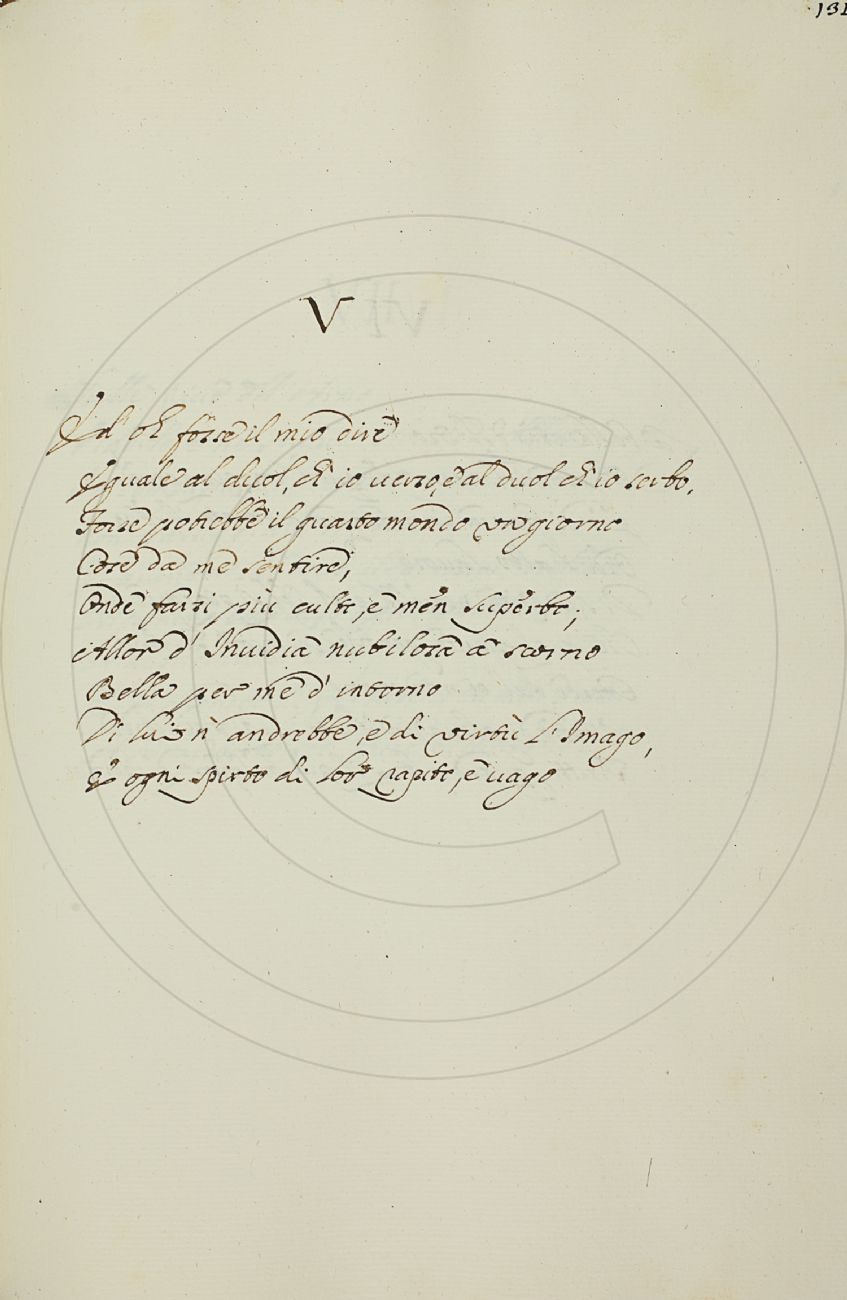 131
V
Ed' oh forse il mio dire
Eguale al duol, ch' io verso, e al duol ch' io serbo.
Forse potrebbe il quarto mondo un giorno
Cose da me sentire,
Onde farsi più culto, e men superbo;
Allor d' Invidia nubilosa a scorno
Bella per me d' intorno
Di lui n' andrebbe, e di virtù l' Imago,
E ogni spirto di lor rapito, e vago